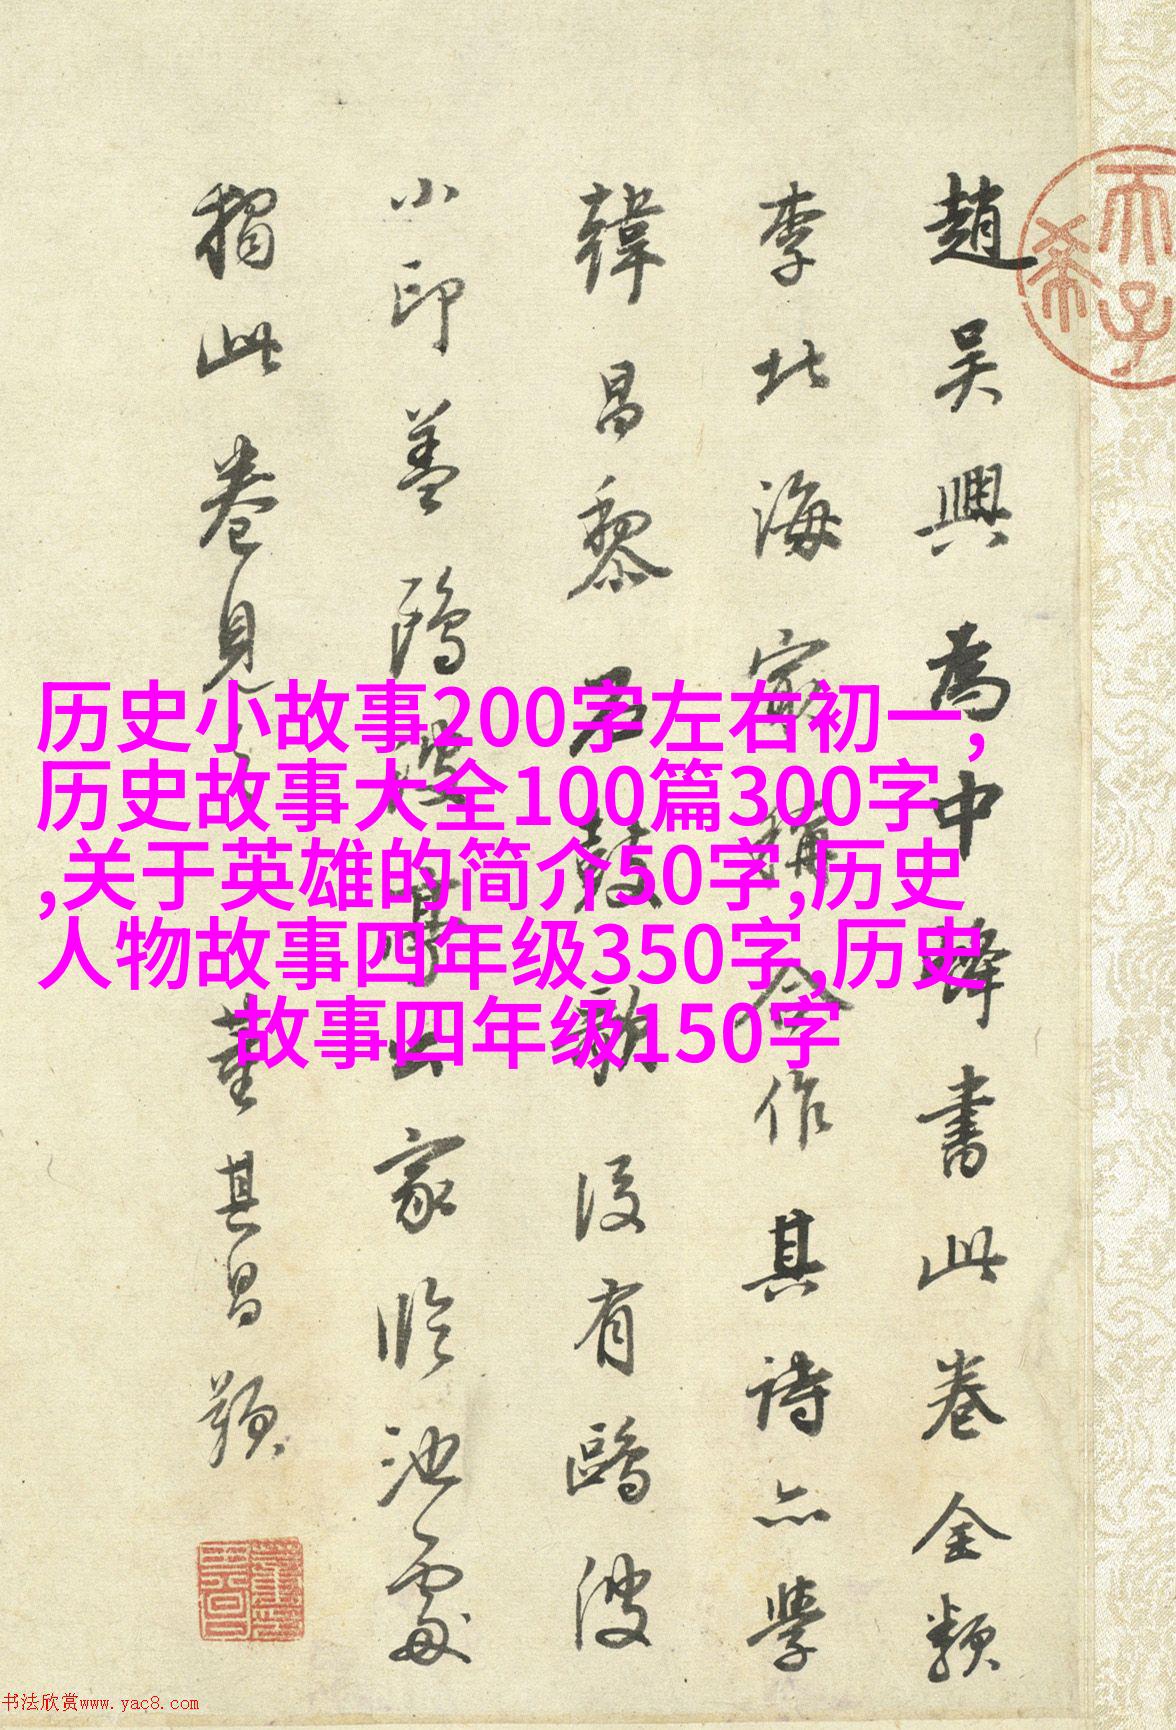 趙吳興為中峰書此卷全類
李北海家稱合作其詩亦學
韓昌黎石鼓歌後有鷗波
小印蓋鷗波家臨池處
獨此卷見董其昌題
历史小故事200字左右初一,
历史故事大全100篇300字
,关于英雄的简介50字,历史
人物故事四年级350字,历史
故事四年级150字
天子
希
书法欣赏www.yac8.com